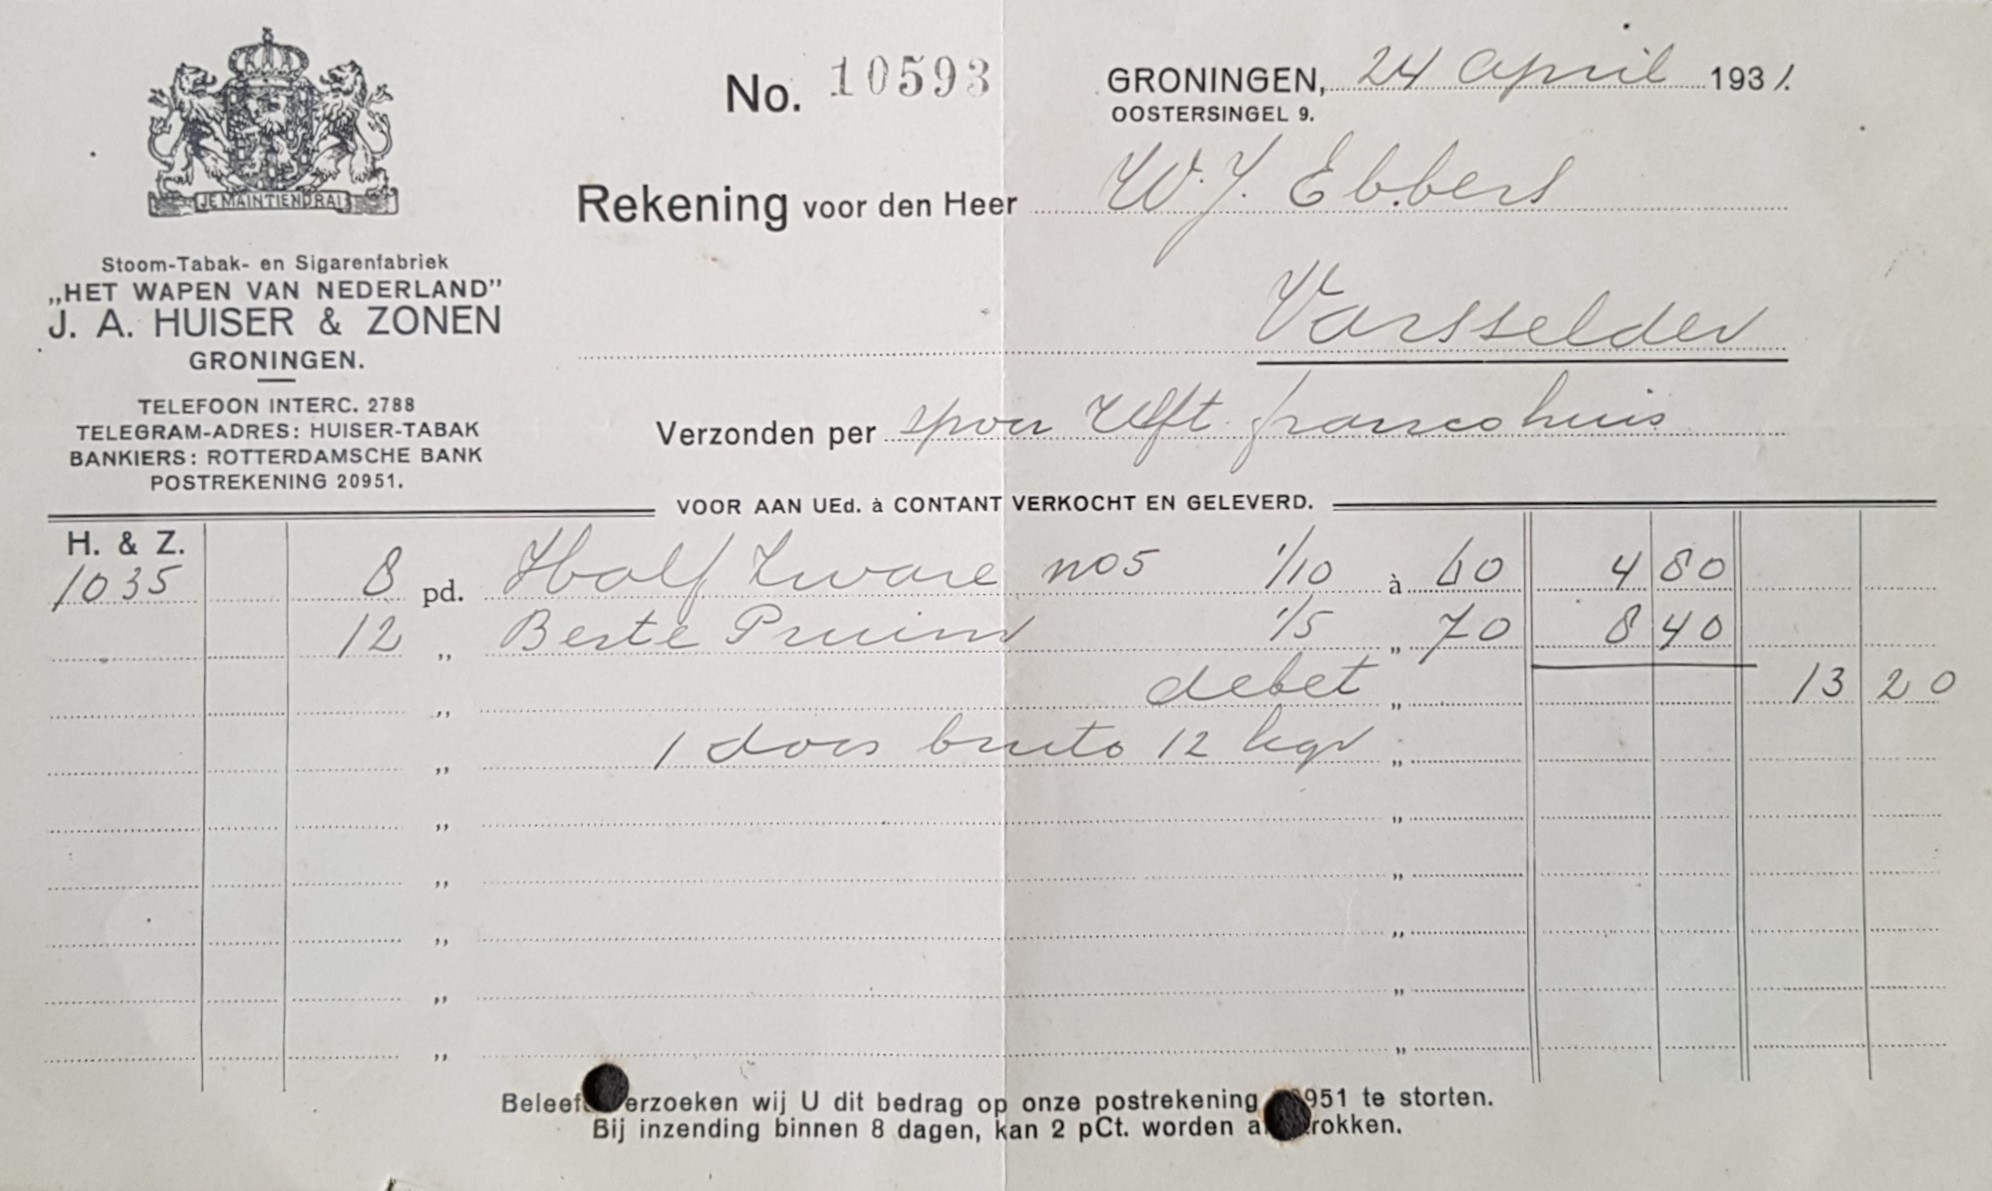 JE MAINTIENDRAI
Stoom-Tabak- en Sigarenfabriek
„HET WAPEN VAN NEDERLAND”
J. A. HUISER & ZONEN
GRONINGEN.
TELEFOON INTERC. 2788
TELEGRAM-ADRES: HUISER-TABAK
BANKIERS: ROTTERDAMSCHE BANK
POSTREKENING 20951.
No. 10593
GRONINGEN, 24 April 1931.
OOSTERSINGEL 9.
Rekening voor den Heer W. J. Ebbers
Varsselder
Verzonden per spoor Ulft franco huis
VOOR AAN UEd. à CONTANT VERKOCHT EN GELEVERD.
H. & Z.
1035 8 pd. Half Zware no 5 1/10 à 60 4 80
12 „ Beste Pruim 1/5 „ 70 8 40
„ debet „ 13 20
„ 1 doos bruto 12 kgr „
„ „
„ „
„ „
„ „
„ „
Beleef erzoeken wij U dit bedrag op onze postrekening 951 te storten.
Bij inzending binnen 8 dagen, kan 2 pCt. worden a rokken.